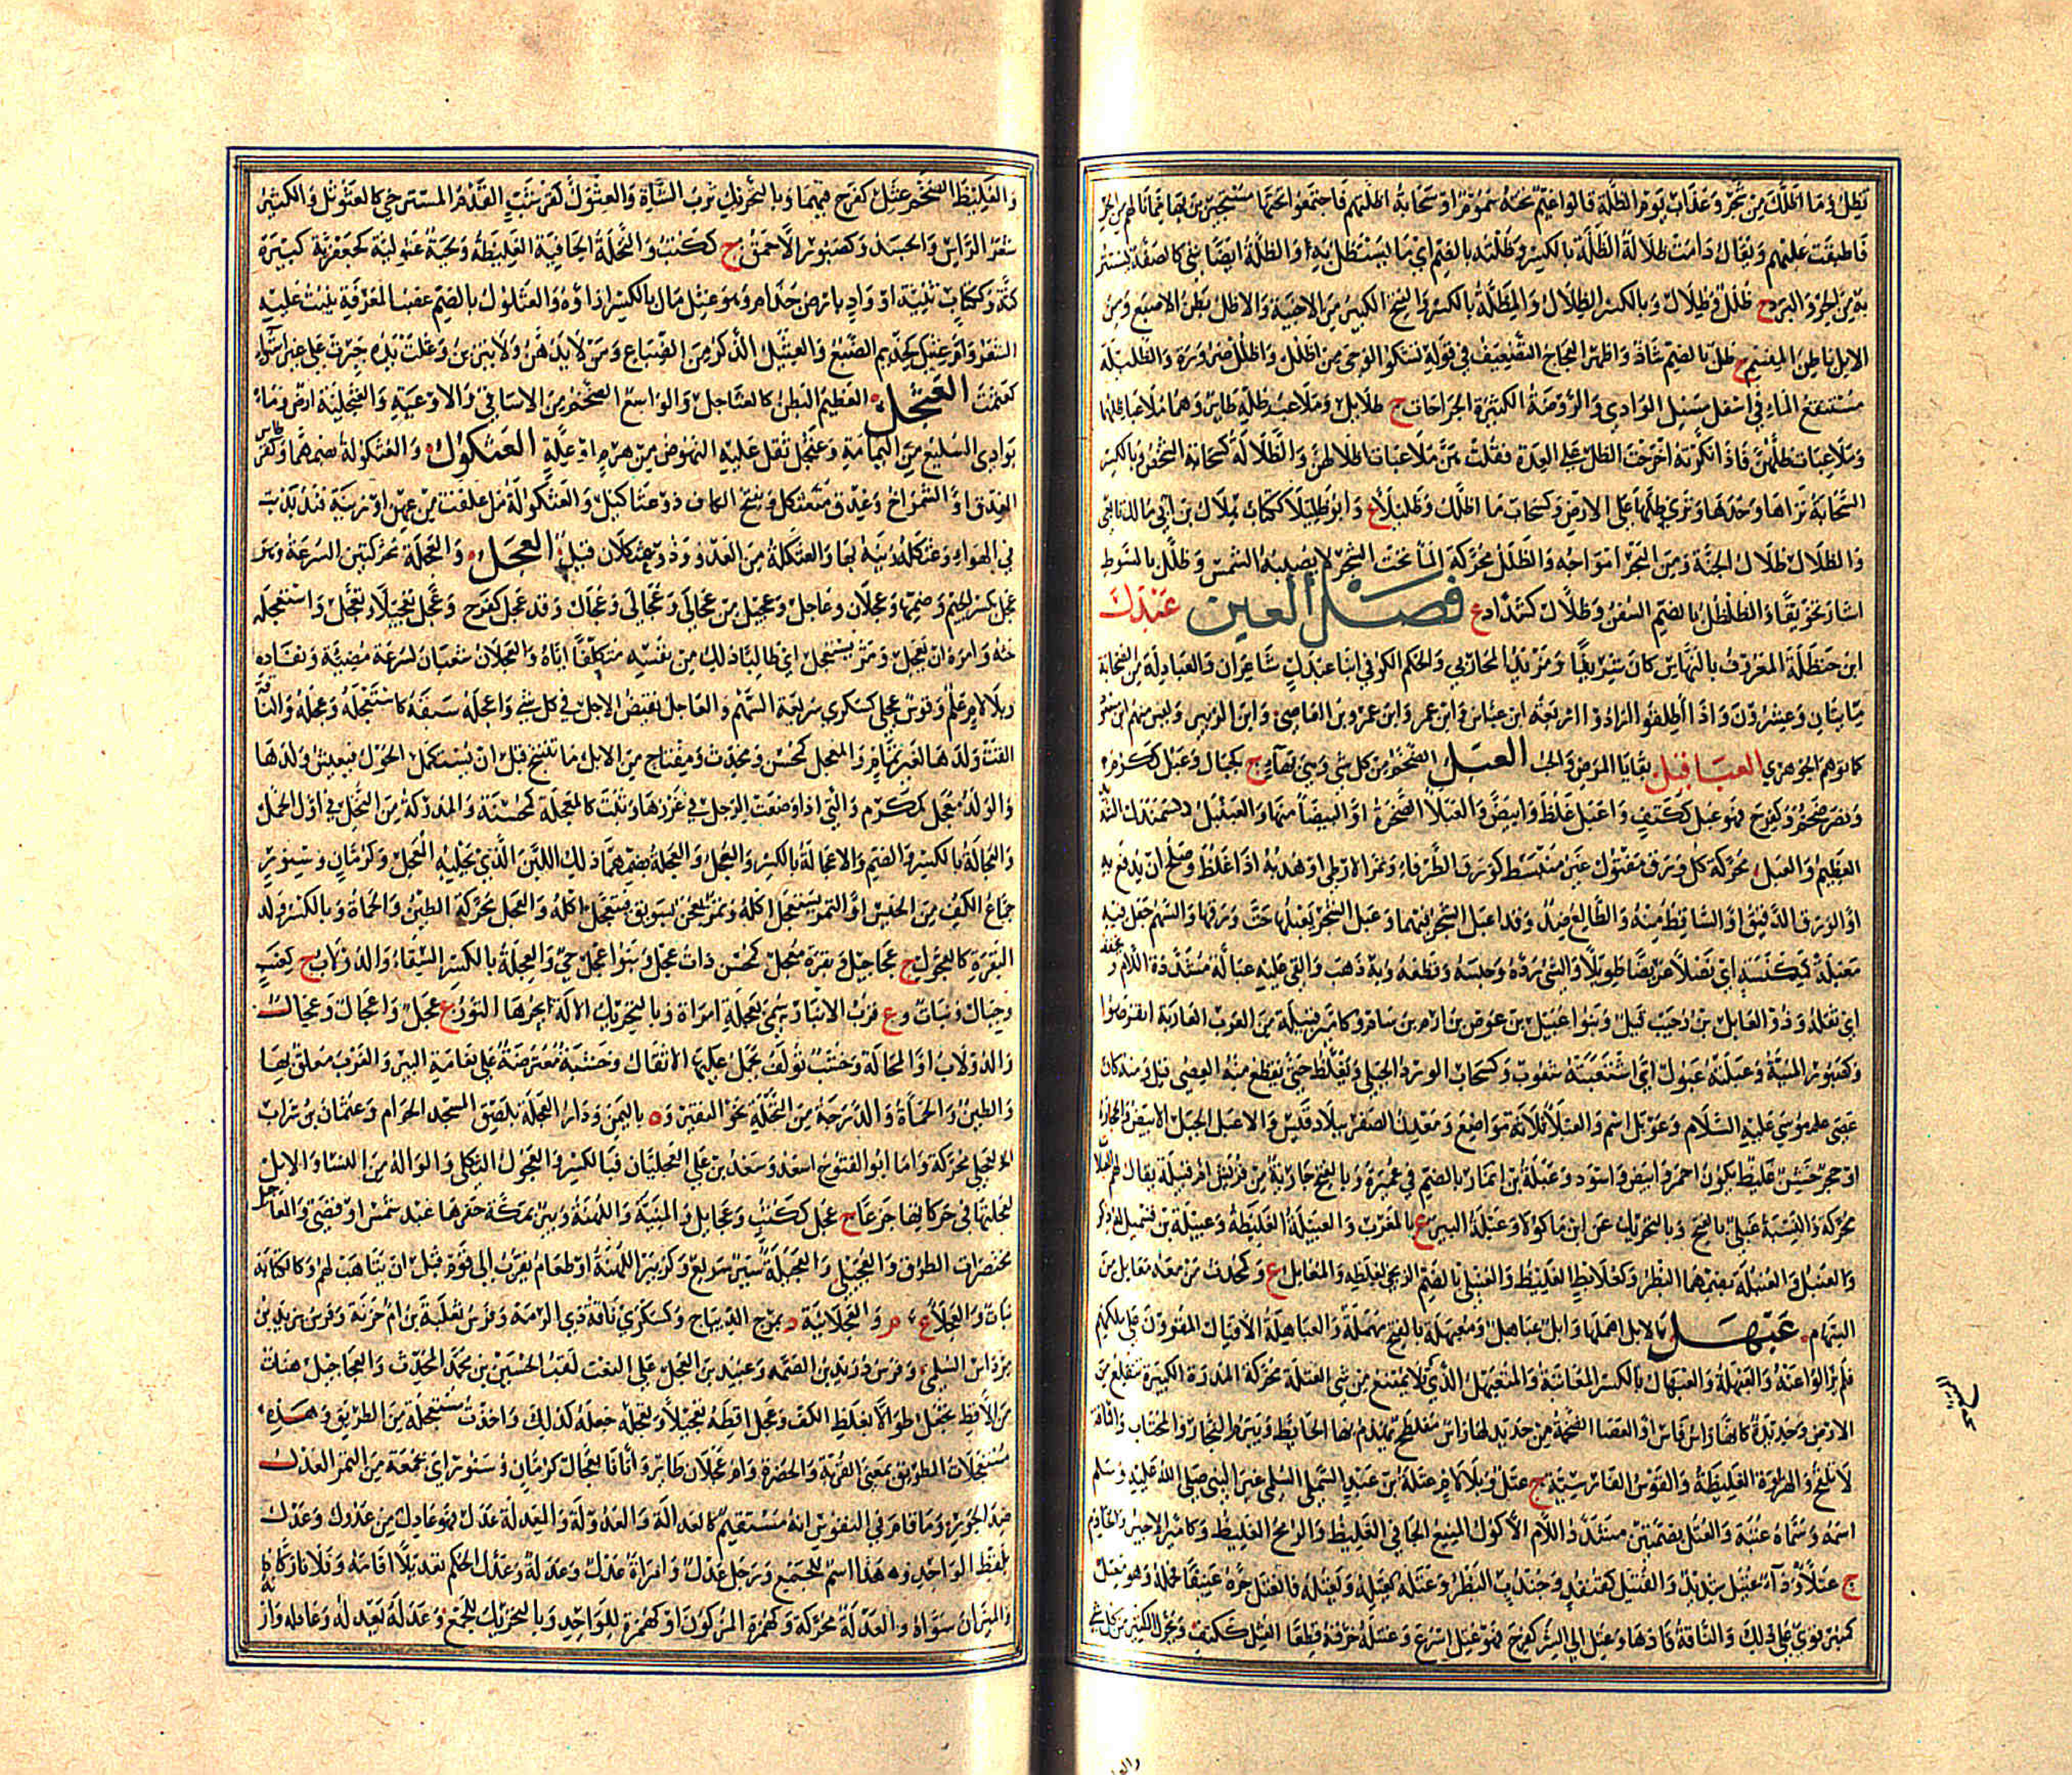 تظل وما اظلك من شجر وعذاب يوم الظلة قالوا غيم تحته سموم او سحابة اظلتهم فاجتمعوا تحتها مستجيرين بها مما نالهم من الحر
فاطبقت عليهم ويقال دامت ظلالة الظلة بالكسر وظلته بالضم اى ما يستظل به او الظلة ايضا شئ كالصفة يستتر
به من الحر والبرد ج ظلل وظلال وبالكسر الظلال والمظلة بالكسر والفتح الكبير من الاخبية والاظل بطن الاصبع ومن
الابل باطن المنسم ج ظل بالضم شاذ واظهر العجاج التضعيف في قوله تشكو الوجى من اظلل واظلل ضرورة والظليلة
مستنقع الماء في اسفل مسيل الوادي والروضة الكثيرة الحرجات ج ظلايل وملاعب ظله طائر وهما ملاعبا ظلهما
وملاعبات ظلهن فاذا نكرته اخرجت الظل على العدة فقلت هن ملاعبات اظلالهن والظلالة كسحابة الشخص وبالكسر
السحابة تراها وحدها وترى ظلها على الارض وكسحاب ما اظلك وظليلاء ع وابو ظلال ككتاب هلال بن ابي مالك تابعي
والظلال ظلال الجنة ومن البحر امواجه والظلل محركة الماء تحت الشجر لا يصيبه الشمس وظلل بالسوط
اشار تخويفا والظلظل بالضم السفن وظلال كشداد ع فصل العين عبدل
ابن حنظلة المعروف بالنهاس كان شريفا ومزيد المحاربي والحكم الكوفي ابنا عبدل شاعران والعبادلة من الصحابة
مايتان وعشرون واذا اطلقوا ارادوا اربعة ابن عباس وابن عمر وابن عمرو بن العاصى وابن الزبير وليس منهم ابن مسعود
كما توهم الجوهري العباقيل بقايا المرض والحب العبل الضخم من كل شئ وهي بهاء ج كجبال وعبل ككرم
ونصر ضخم وكفرح فهو عبل ككتف واعبل غلظ وابيض والعبلاء الصخرة او البيضاء منها والعبنبل كسمندل الشديد
العظيم والعبل محركة كل ورق مفتول غير منبسط كورق الطرفاء وثمر الارطى او هدبه اذا غلظ وصلح ان يدبغ به
او الورق الدقيق او الساقط منه والطالع ضد وقد اعبل الشجر فيهما وعبل الشجر يعبلها حت ورقها والسهم جعل فيه
معبلة كمكنسة اى نصلا عريضا طويلا والشئ رده وحبسه وقطعه وبه ذهب والقى عليه عبالته مشددة اللام ويخفف
اى ثقله وذو العابل بن رحيب قيل وبنوا عبيل بن عوص بن ارم بن سام وكامير قبيلة من العرب العاربة انقرضوا
وكصبور المنية وعبلته عبول اى اشتعبته شعوب وكسحاب الورد الجبلي ويغلظ حتى يقطع منه العصى قيل ومنه كان
عصى موسى عليه السلام وعوبل اسم والعبلاء ثلاثة مواضع ومعدن الصفر ببلاد قيس والاعبل الجبل الابيض الحجارة
او حجر خشن غليظ يكون احمر وابيض واسود وعبلة بن انمار بالضم في عميرة وبالفتح جارية من قريش ام قبيلة يقال لهم العبلات
محركة والنسبة عبلي بالفتح وبالتحريك عن ابن ماكولا وعبلة البير ع بالمغرب والعبيلة الغليظة وعبيلة بن قسميل
والعنبل والعنبلة بضمهما البظر وكعلابط الغليظ والعنبلي بالضم الزنجي لغلظه والمعابل ع وكمحدث من معه معابل من
السهام عبهل بالابل اهملها وابل عباهل ومعبهلة بالفتح مهملة والعباهلة الاقيال المقرون على ملكهم
فلم يزالوا عنه والعبهلة والعبهال بالكسر المعاتبة والمتعبهل الذي لا يمتنع من شئ العتلة محركة المدرة الكبيرة تنقلع من
الارض وحديدة كانها راس فاس او العصا الضخمة من حديد لها راس مفلطح يهدم بها الحائط وبيرم النجار والمجتاب والناقة
لا تلقح والهراوة الغليظة والقوس الفارسية ج عتل وبلا لام عتلة بن عبد السلمي غير النبي صلى الله عليه وسلم
اسمه وسماه عتبة والعتل بضمتين مشددة اللام الاكول المنيع الجافي الغليظ والرمح الغليظ وكامير الاجير والخادم
ج عتلاء وداء عتيل شديد والعنتل كقنفذ وجندب البظر وعتله يعتله ويعتله فانعتل جره عنيفا فحمله وهو معتل
كمنبر قوي على ذلك والناقة قادها وعتل الى الشر كفرح فهو عتل اسرع وعنتله خرقه قطعا العثل ككتف ويحرك الكثير من كل شئ
والغليظ الضخم عثل كفرح فيهما وبالتحريك ثرب الشاة والعثول كقرشب الفدم المسترخي كالعثوثل والكثير
شعر الراس والجسد وكصبور الاحمق ج ككتب والنخلة الجافية الغليظة ولحية عثولية كجعفرية كبيرة
كثة وككتاب ثنية او واد بارض جذام وهو عثل مال بالكسر ازاؤه والعثلول بالضم عصب المعرفة ينبت عليه
الشعر وام عثيل كحذيم الضبع والعثيل الذكر من الضباع ومن لا يدهن ولا يتزين وعثلت يده جبرت على غير استواء
كعثمت العثجل العظيم البطن كالعثاجل والواسع الضخم من الاساقي والاوعية والعثجلية ارض وماء
بوادي السليع من اليمامة وعثجل ثقل عليه النهوض من هرم او علة العثكول والعثكولة بضمهما وكقرطاس
العذق او الشمراخ وعذق متعثكل وبفتح الكاف ذو عثاكيل والعثكولة ما علقت من عهن او زينة فتذبذبت
في الهواء وعثكله زينه بها والعثكلة من العدو وذو عثكلان قيل العجل والعجلة محركتين السرعة وهو
عجل بكسر الجيم وضمها وعجلان وعاجل وعجيل من عجالى وعجالى وعجال وقد عجل كفرح وعجل تعجيلا وتعجل واستعجله
حثه وامره ان يعجل ومر يستعجل اى طالبا ذلك من نفسه متكلفا اياه والعجلان شعبان لسرعة مضيه ونفاده
وبلا لام علم وقوس عجلى كسكرى سريعة السهم والعاجل نقيض الاجل في كل شئ واعجله سبقه كاستعجله وعجله والناقة
القت ولدها لغير تمام والمعجل كمحسن ومحدث ومفتاح من الابل ما تنتج قبل ان تستكمل الحول فيعيش ولدها
والولد معجل كمكرم والتي اذا وضعت الرجل في غرزها وثبت كالمعجلة كمحسنة والمدركة من النخل في اول الحمل
والعجالة بالكسر والضم والاعجالة بالكسر والعجل والعجلة بضمهما ذلك اللبن الذي يحلبه المعجل وكرمان وسنور
جماع الكف من الحيس او التمر يستعجل اكله وتمر يعجن بسويق فيتعجل اكله والعجل محركة الطين والحماة وبالكسر ولد
البقرة كالعجول ج عجاجيل وبقرة معجل كمحسن ذات عجل وبنوا عجل حي والعجلة بالكسر السقاء والدولاب ج كعنب
وجبال ونبات و ع قرب الانبار سمى بعجلة امراة وبالتحريك الالة يجرها الثور ج عجل واعجال وعجال
والدولاب او المحالة وخشب تولف يحمل عليها الاثقال وخشبة معترضة على نعامة البير والغرب معلق بها
والطين والحماة والدرجة من النخلة نحو النقير و ة باليمن ودار العجلة بلصيق المسجد الحرام وعثمان بن شراب
العجلي محركة واما ابو الفتوح اسعد وسعد بن علي العجليان فبالكسر والعجول الثكلى والواله من النساء والابل
لعجلتها في حركاتها جزعا ج عجل ككتب وعجايل والمنية واللهنة وبير بمكة حفرها عبد شمس او قصي والمعاجل
مختصرات الطرق والعجيلى والعجيلة سير سريع وكزبير اللهنة او طعام يقرب الى قوم قبل ان يتاهب لهم وكالكتانة
نبات والعجلاء ع م والعجلانية د بمرج الديباج وكسكرى ناقة ذي الرمة وفرس ثعلبة بن ام حزنة وفرس يزيد بن
مرداس السلمي وفرس دريد بن الصمة وعبيد بن العجل على النعت لقب الحسين بن محمد المحدث والعجاجيل هنات
من الاقط يجعل طوالا بغلظ الكف وعجل اقطه تعجيلا وتعجله جعله كذلك واخذت مستعجلة من الطريق وهذه
مستعجلات الطريق بمعنى القربة والحضرة وام عجلان طائر واتانا بعجال كرمان وسنور اى بجمعة من التمر العدل
ضد الجور وما قام في النفوس انه مستقيم كالعدالة والعدولة والمعدلة عدل فهو عادل من عدول وعدل
بلفظ الواحد وهذا اسم للجمع ورجل عدل وامراة عدل وعدلة وعدل الحكم تعديلا اقامه وفلانا زكاه
والميزان سواه والعدلة محركة وكهمزة المزكون او كهمزة للواحد وبالتحريك للجمع وعدله يعدله وعادله وازنه